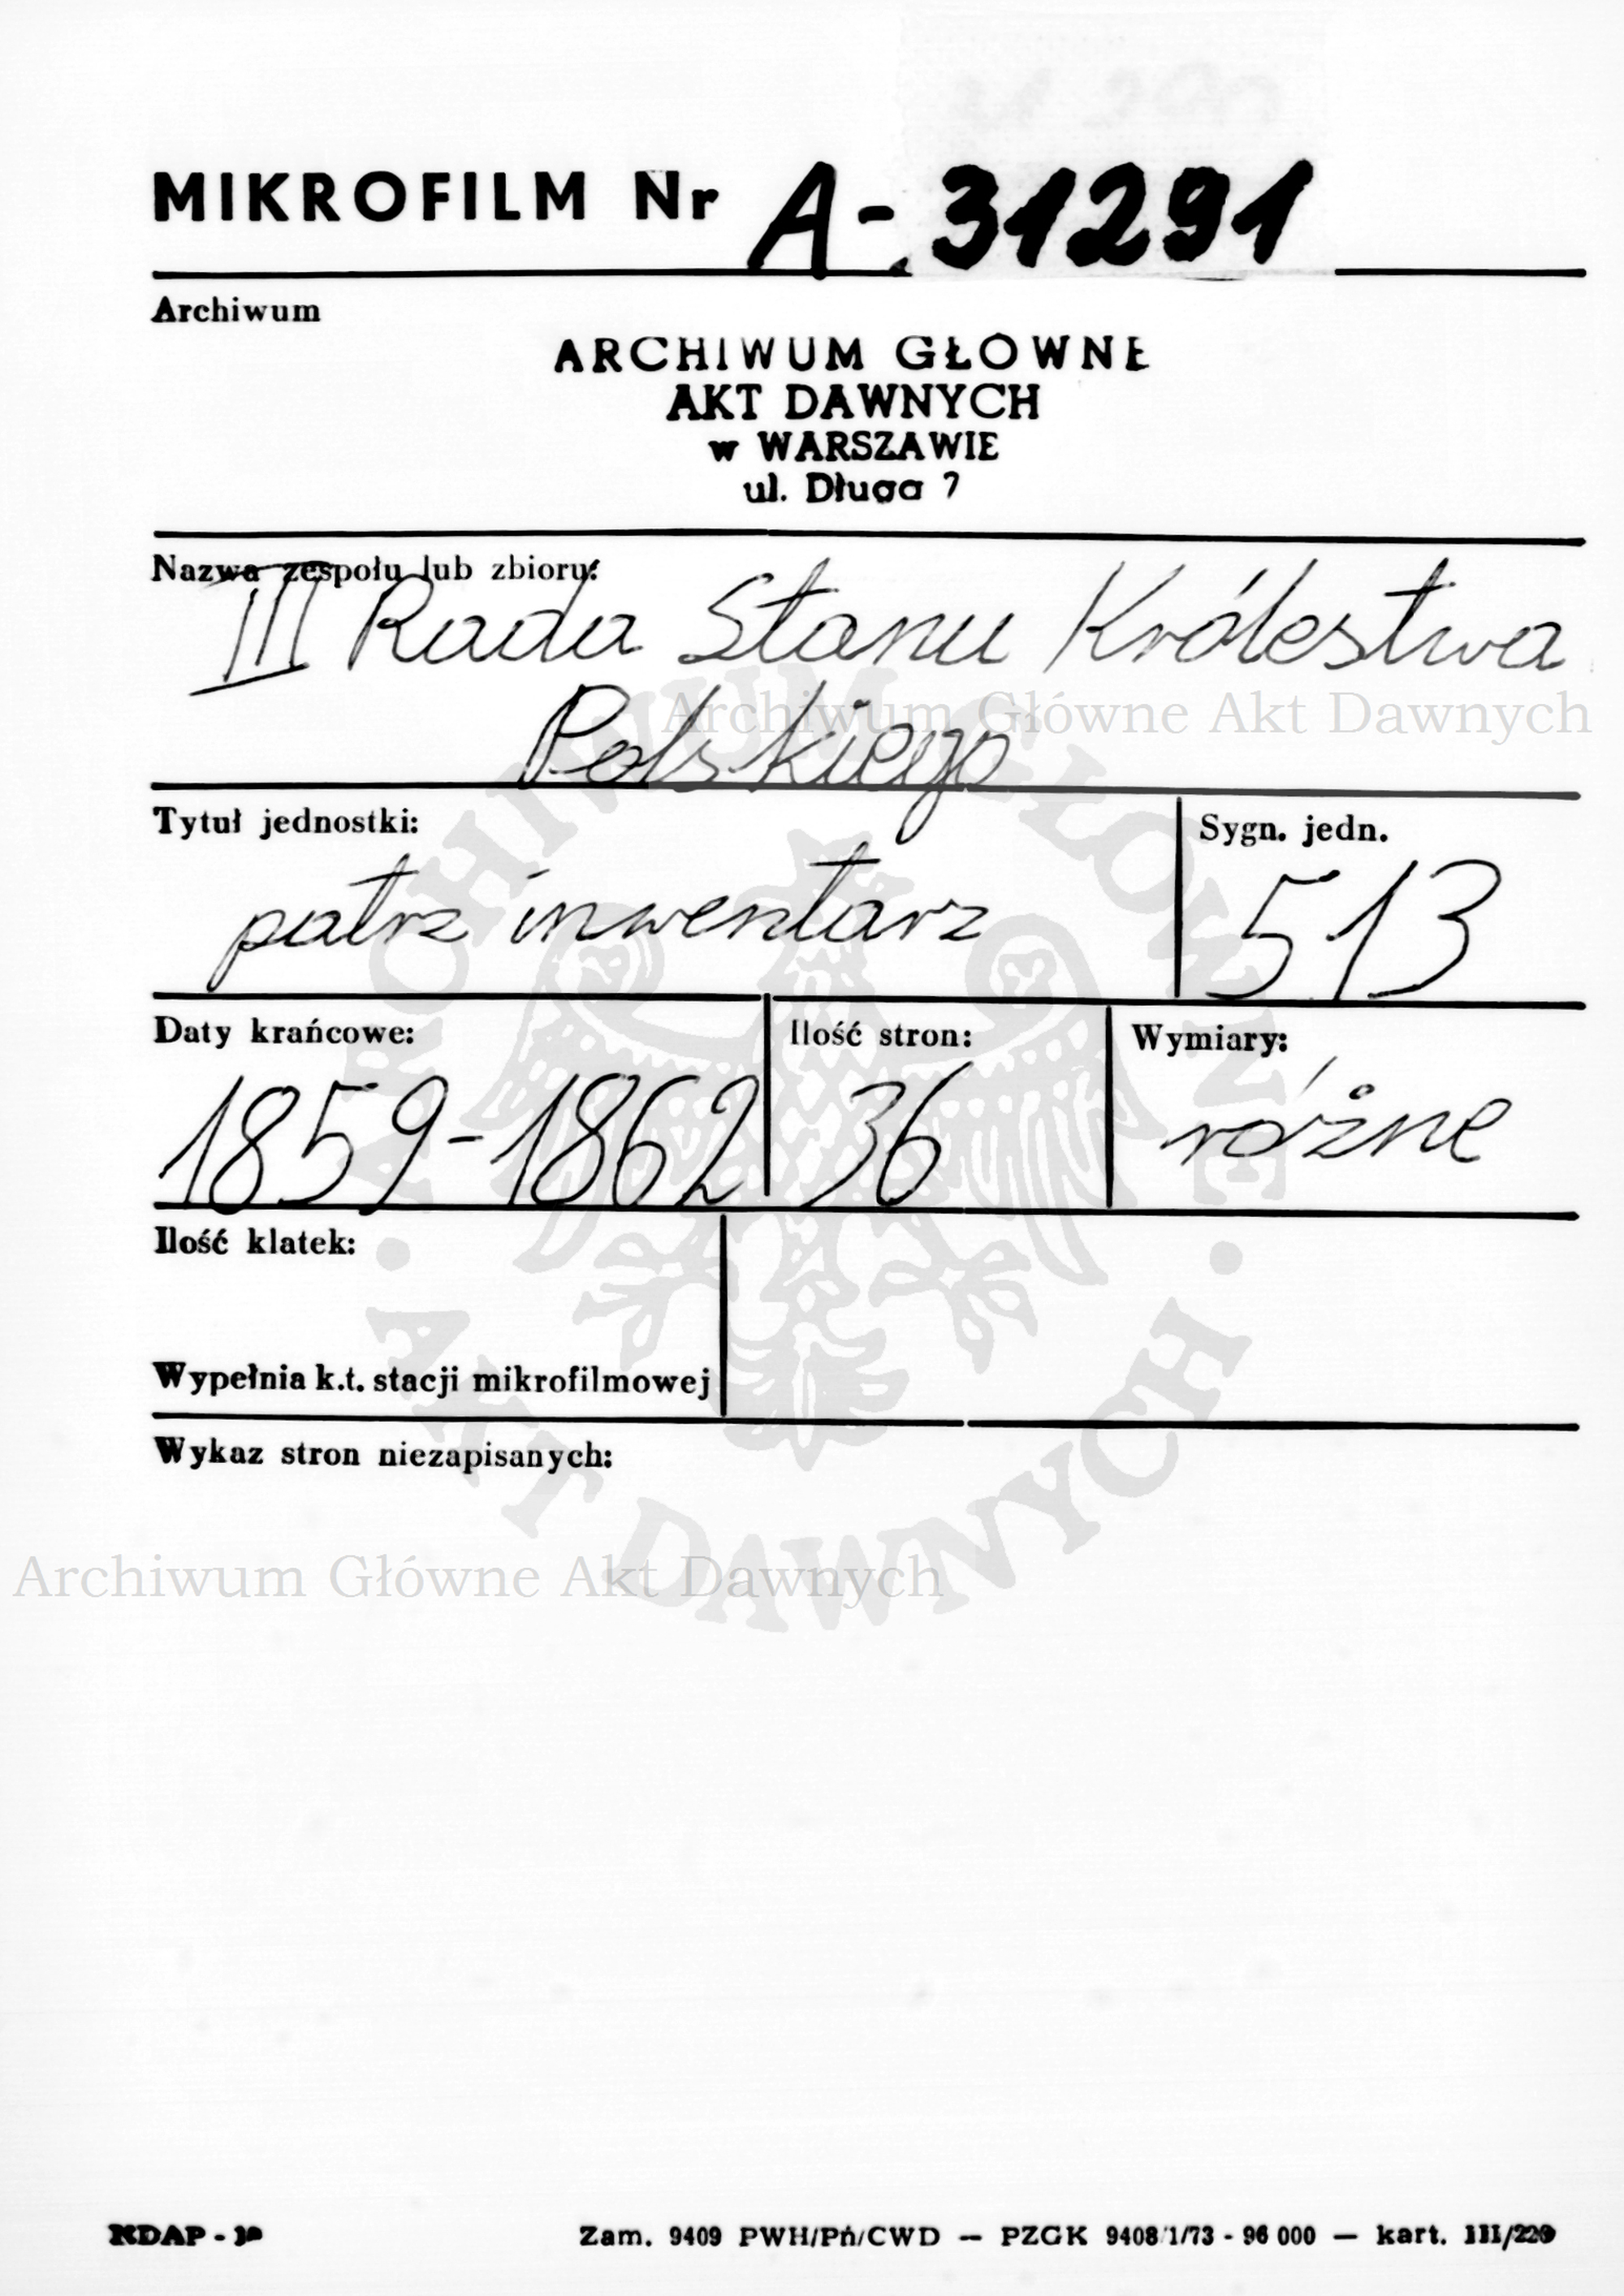 MIKROFILM Nr A-31291
Archiwum
ARCHIWUM GŁOWNE
AKT DAWNYCH
w WARSZAWIE
ul. Długa 7
Nazwa zespołu lub zbioru:
III Rada Stanu Królestwa
Polskiego
Archiwum Główne Akt Dawnych
Tytuł jednostki:
patrz inwentarz
Sygn. jedn.
513
Daty krańcowe:
1859-1862
Ilość stron:
36
Wymiary:
różne
Ilość klatek:
Wypełnia k.t. stacji mikrofilmowej
Wykaz stron niezapisanych:
ARCHIWUM GŁÓWNE
· AKT DAWNYCH ·
Archiwum Główne Akt Dawnych
NDAP -
Zam. 9409 PWH/Pń/CWD — PZGK 9408/1/73 - 96 000 — kart. III/220